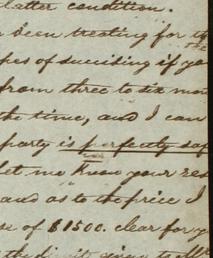 latter condition.
been treating for the
pes of succeeding if you
from three to six mon
the time, and I can
party is perfectly saf
let me know your res
and as to the price I
se of $1500. clear for y
the